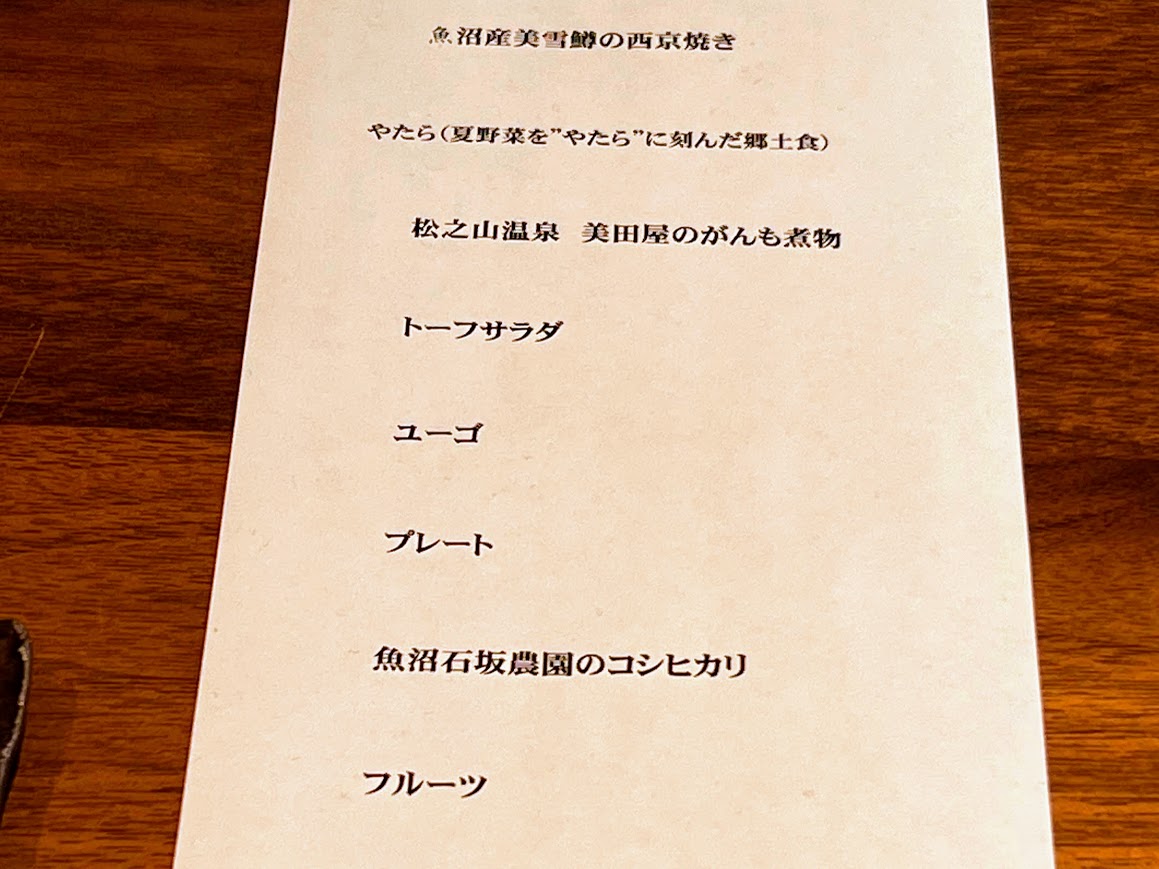 魚沼産美雪鱒の西京焼き
やたら(夏野菜を”やたら”に刻んだ郷土食)
松之山温泉 美田屋のがんも煮物
トーフサラダ
ユーゴ
プレート
魚沼石坂農園のコシヒカリ
フルーツ